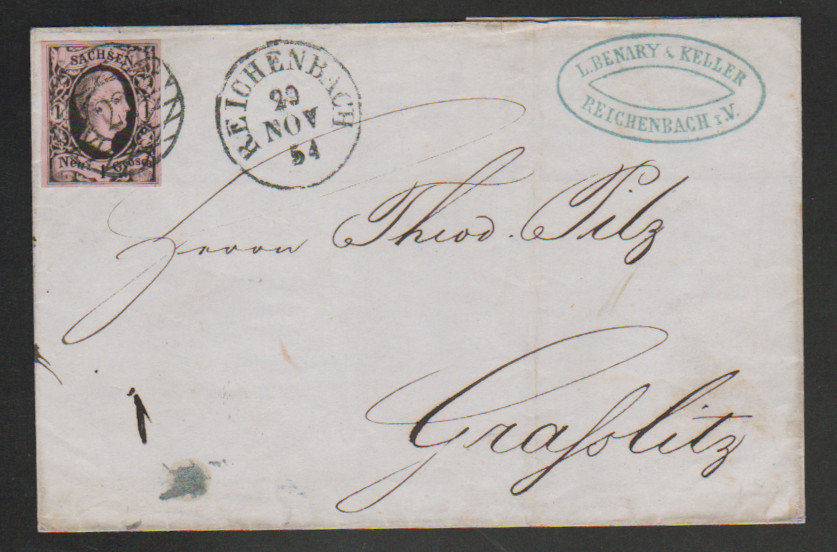 SACHSEN
1 1
Neu-1-Grosch.
REICHENBACH
29
NOV
54
L. BENARY & KELLER
REICHENBACH i.V.
Herrn Theod. Pilz
Grasslitz
1